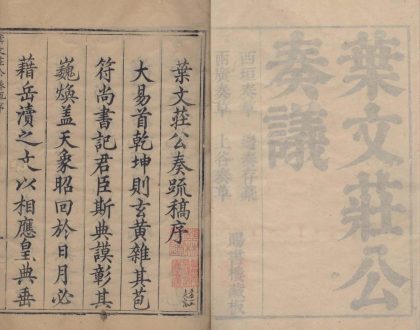 葉文莊公
奏議
西垣奏草 邊奏存稿
兩廣奏草 上谷奏草
賜書樓藏板
葉文莊公奏疏稿序
大易首乾坤則玄黃雜其苞
符尚書記君臣斯典謨彰其
巍煥盖天象昭回於日月必
藉岳瀆之文以相應皇典垂